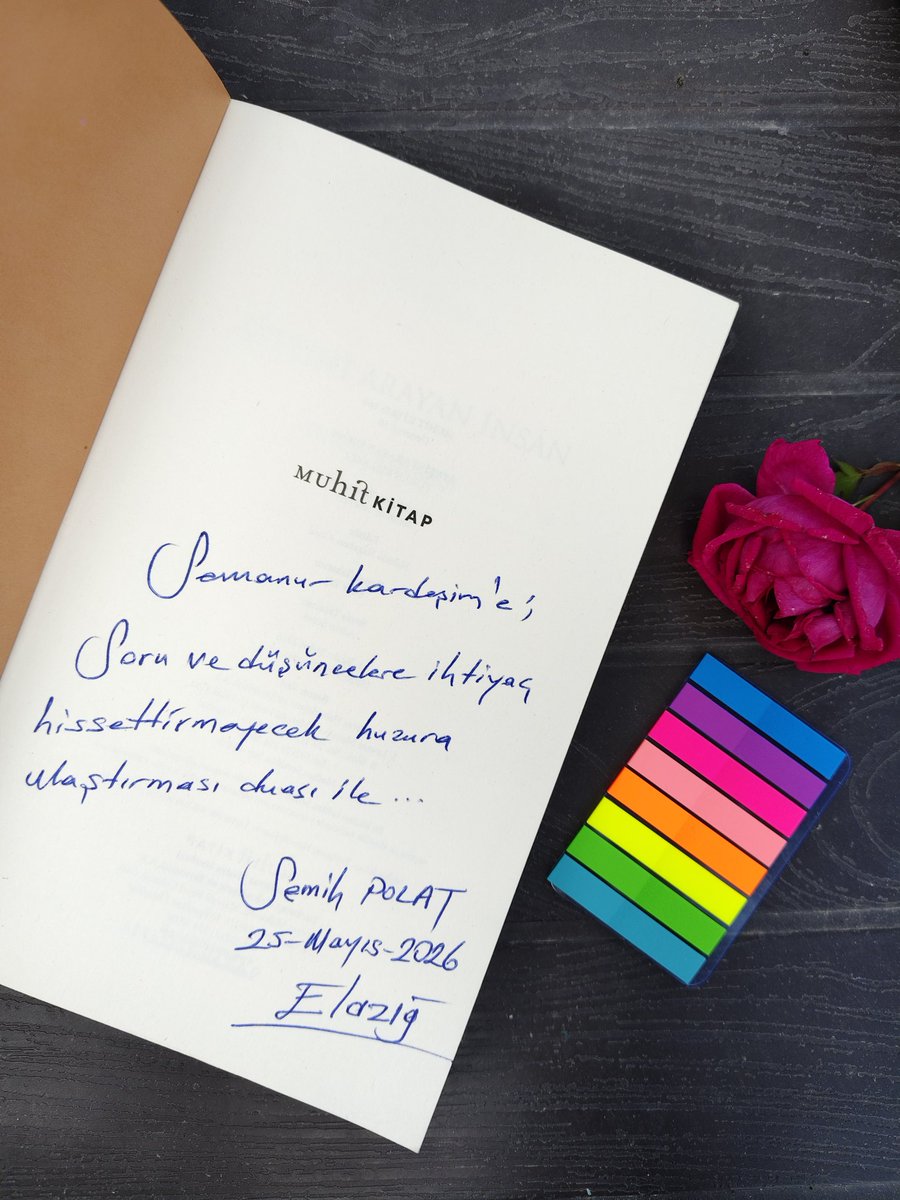 MUhit KİTAP
Semanur kardeşim'e;
Soru ve düşüncelere ihtiyaç
hissettirmeyecek huzura
ulaştırması duası ile...
Semih POLAT
25-Mayıs-2026
Elazığ